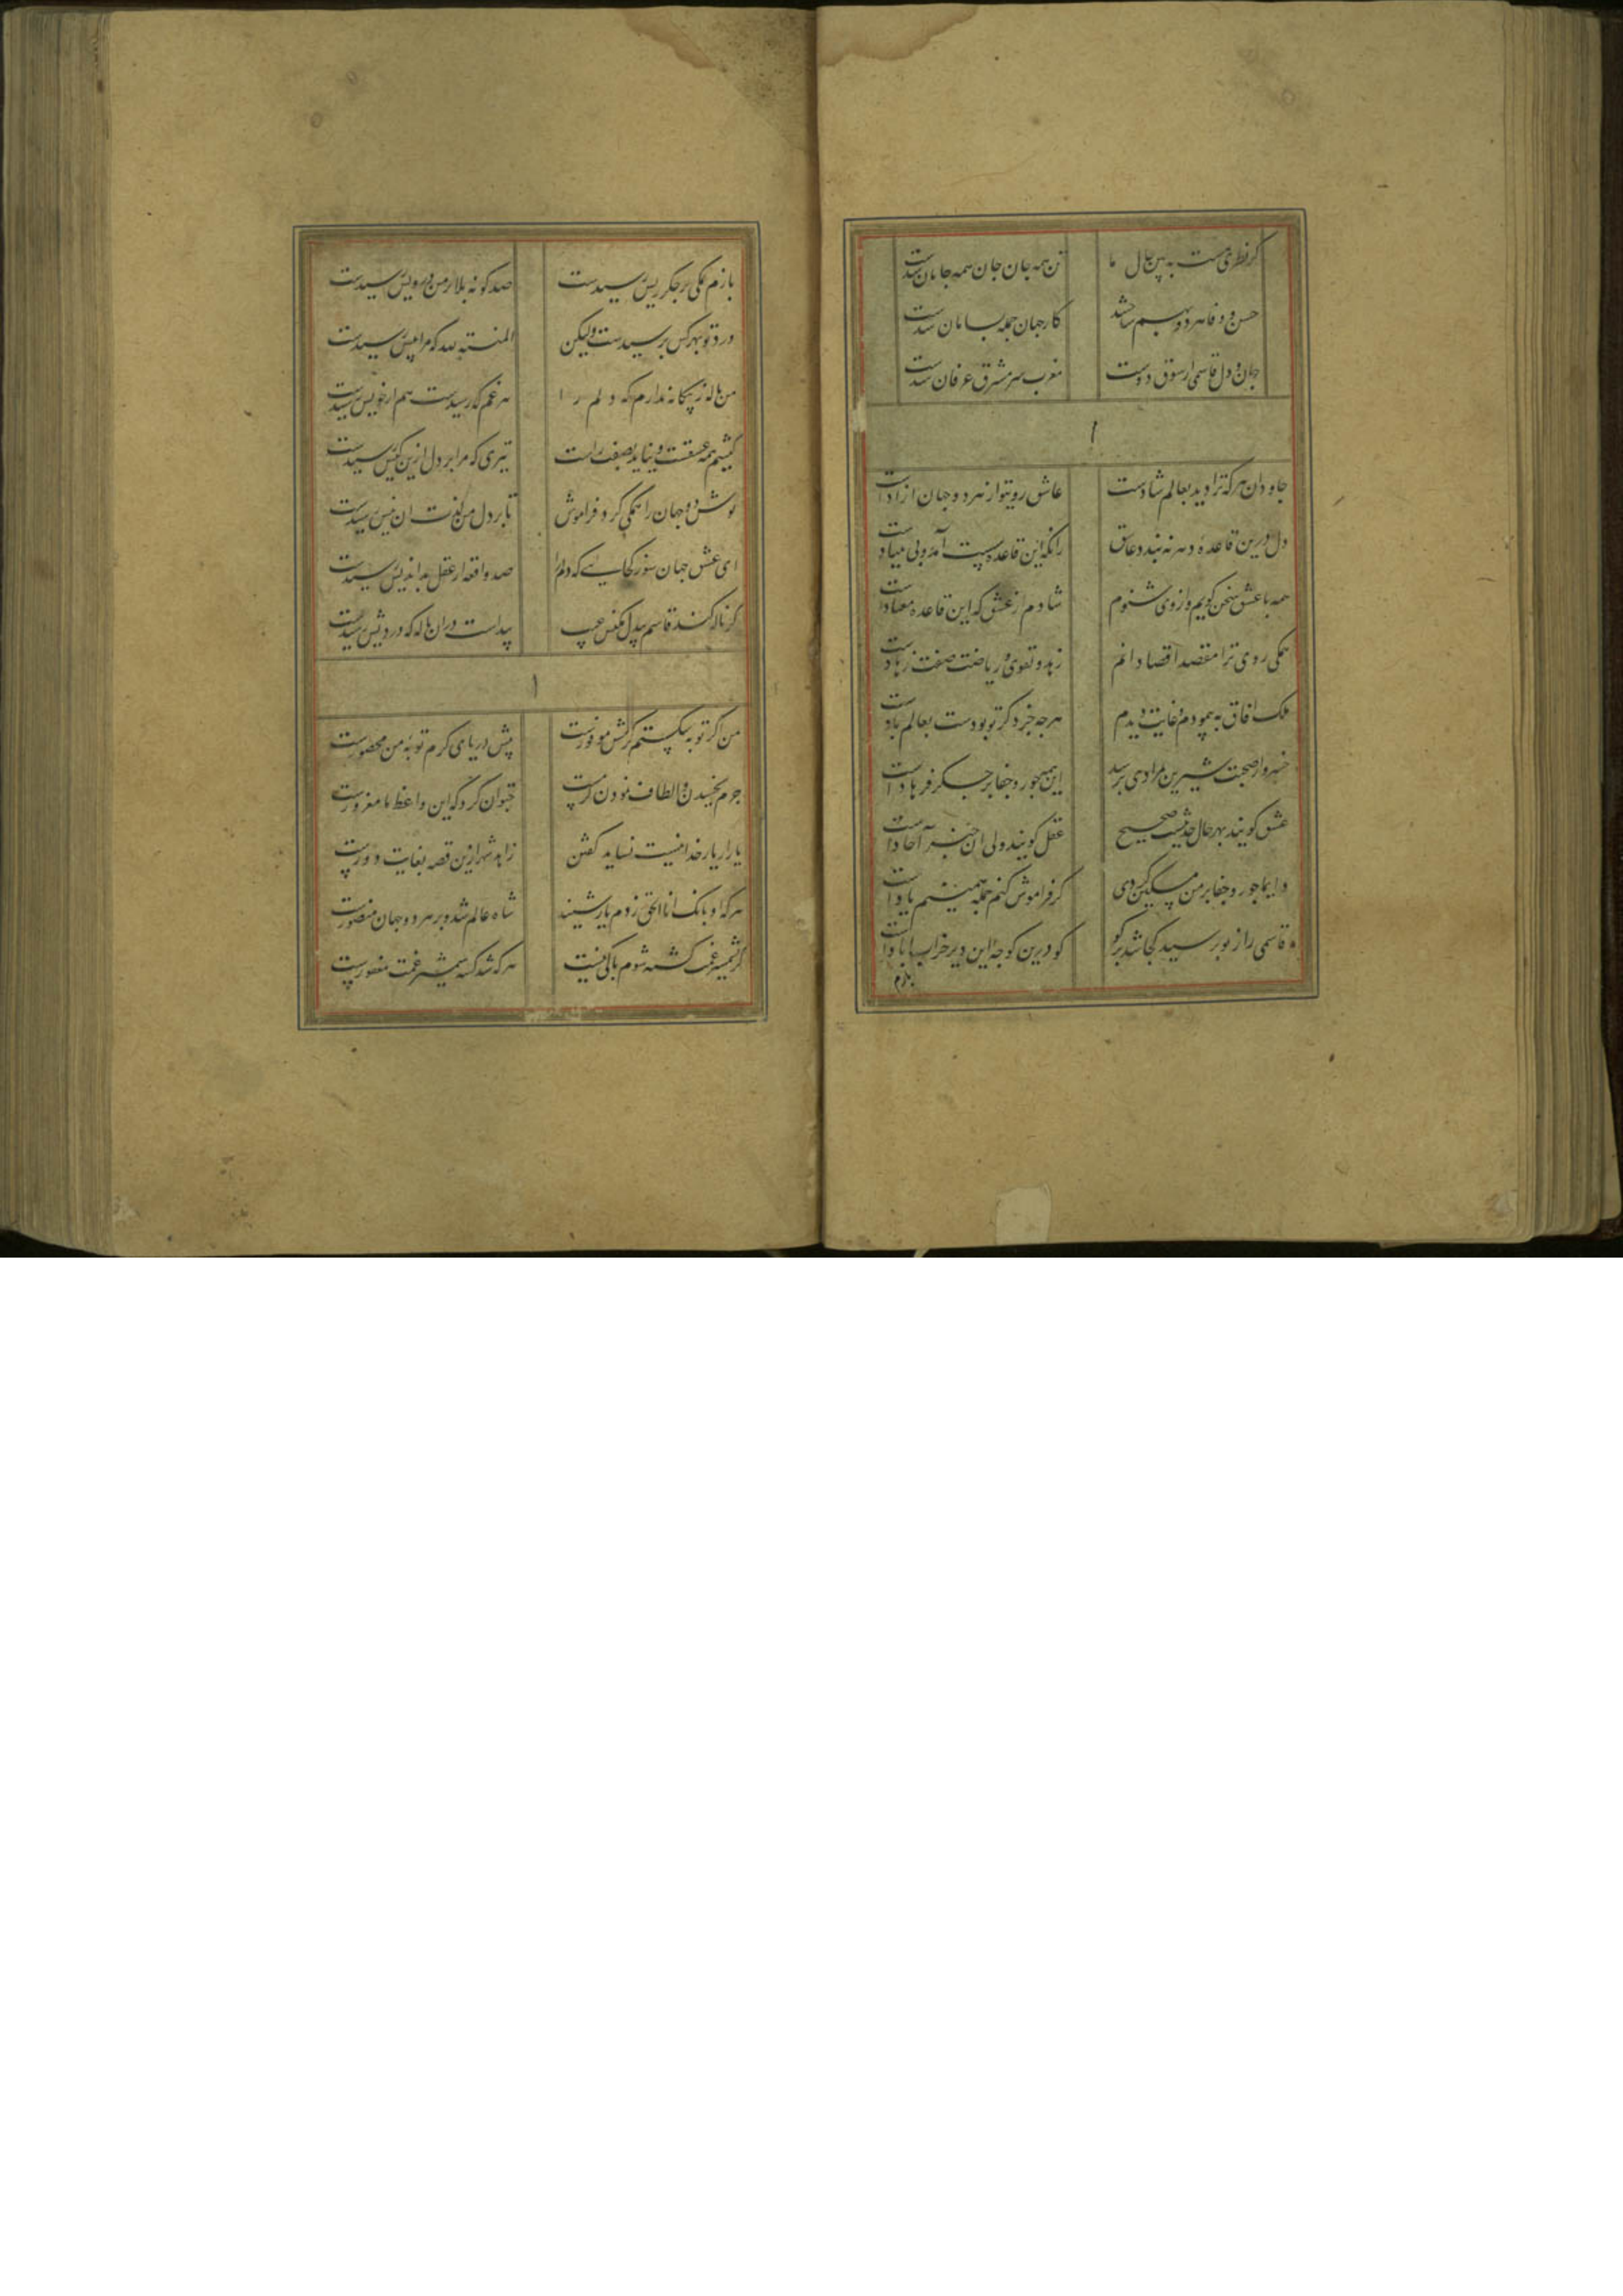 گر نظری هست به بین حال ما تن همه جان جان همه جانان شدست
حسن و وفا هر دو بهم ساختند کار جهان جمله بسامان شدست
جان و دل قاسمی از شوق دوست مغرب سر مشرق عرفان شدست
جاودان هر که ترا دید بعالم شادست عاشق روی تو از هر دو جهان ازادست
دل درین قاعدهٔ دهر نه بندد عاشق زانکه این قاعده سست آمد و بی بنیادست
همه با عشق سخن کویم و از وی شنوم شادم از عشق که این قاعده معتادست
همکی روی ترا مقصد اقصا دانم زهد و تقوی و ریاضت صفت زهادست
ملک افاق به پیمودم و غایت دیدم هرچه جز ذکر تو بودست بعالم بادست
خسرو از صحبت شیرین بمرادی برسد این همه جور و جفا بر جکر فرهادست
عشق کویند بهر حال حدیثیست صحیح عقل کویند ولی ان خبر آحادست
دایما جور و جفا بر من مسکین کردی کر فراموش کنم جمله همینم یادست
قاسمی را ز تو پرسید کجا شد بر کو کو درین کوچه این دیر خراب ابادست
بازم
بازم نمکی بر جکر ریش رسیدست صد کونه بلا بر من درویش رسیدست
درد تو بهر کس برسیدست ولیکن المنة لله که مرا بیش رسیدست
من ناله ز بیکانه ندارم که دلم را هر غم که رسیدست هم از خویش رسیدست
کیشم همه عشقست و نیاید بصفت راست تیری که مرا بر دل ازین کیش رسیدست
نوش دو جهان را همکی کرد فراموش تا بر دل من لذت ان نیش رسیدست
ای عشق جهان سوز کجایی که دلم را صد واقعه از عقل بداندیش رسیدست
کر ناله کند قاسم بیدل مکنش عیب پیداست دران ناله که دردیش رسیدست
من اکر توبه شکستم کرمش موفورست پیش دریای کرم توبهٔ من محصورست
جرم بخشیدن و الطاف نمودن کرمست نتوان کرد که این واعظ ما مغرورست
یار را یار خدا نیست نشاید کفتن زاهد شهر ازین قصه بغایت دورست
هر که او بانک انا الحق زد و هم یار شنید شاه عالم شد و بر هر دو جهان منصورست
کر بشمشیر غمت کشته شوم باکی نیست هر که شد کشته شمشیر غمت مغفورست